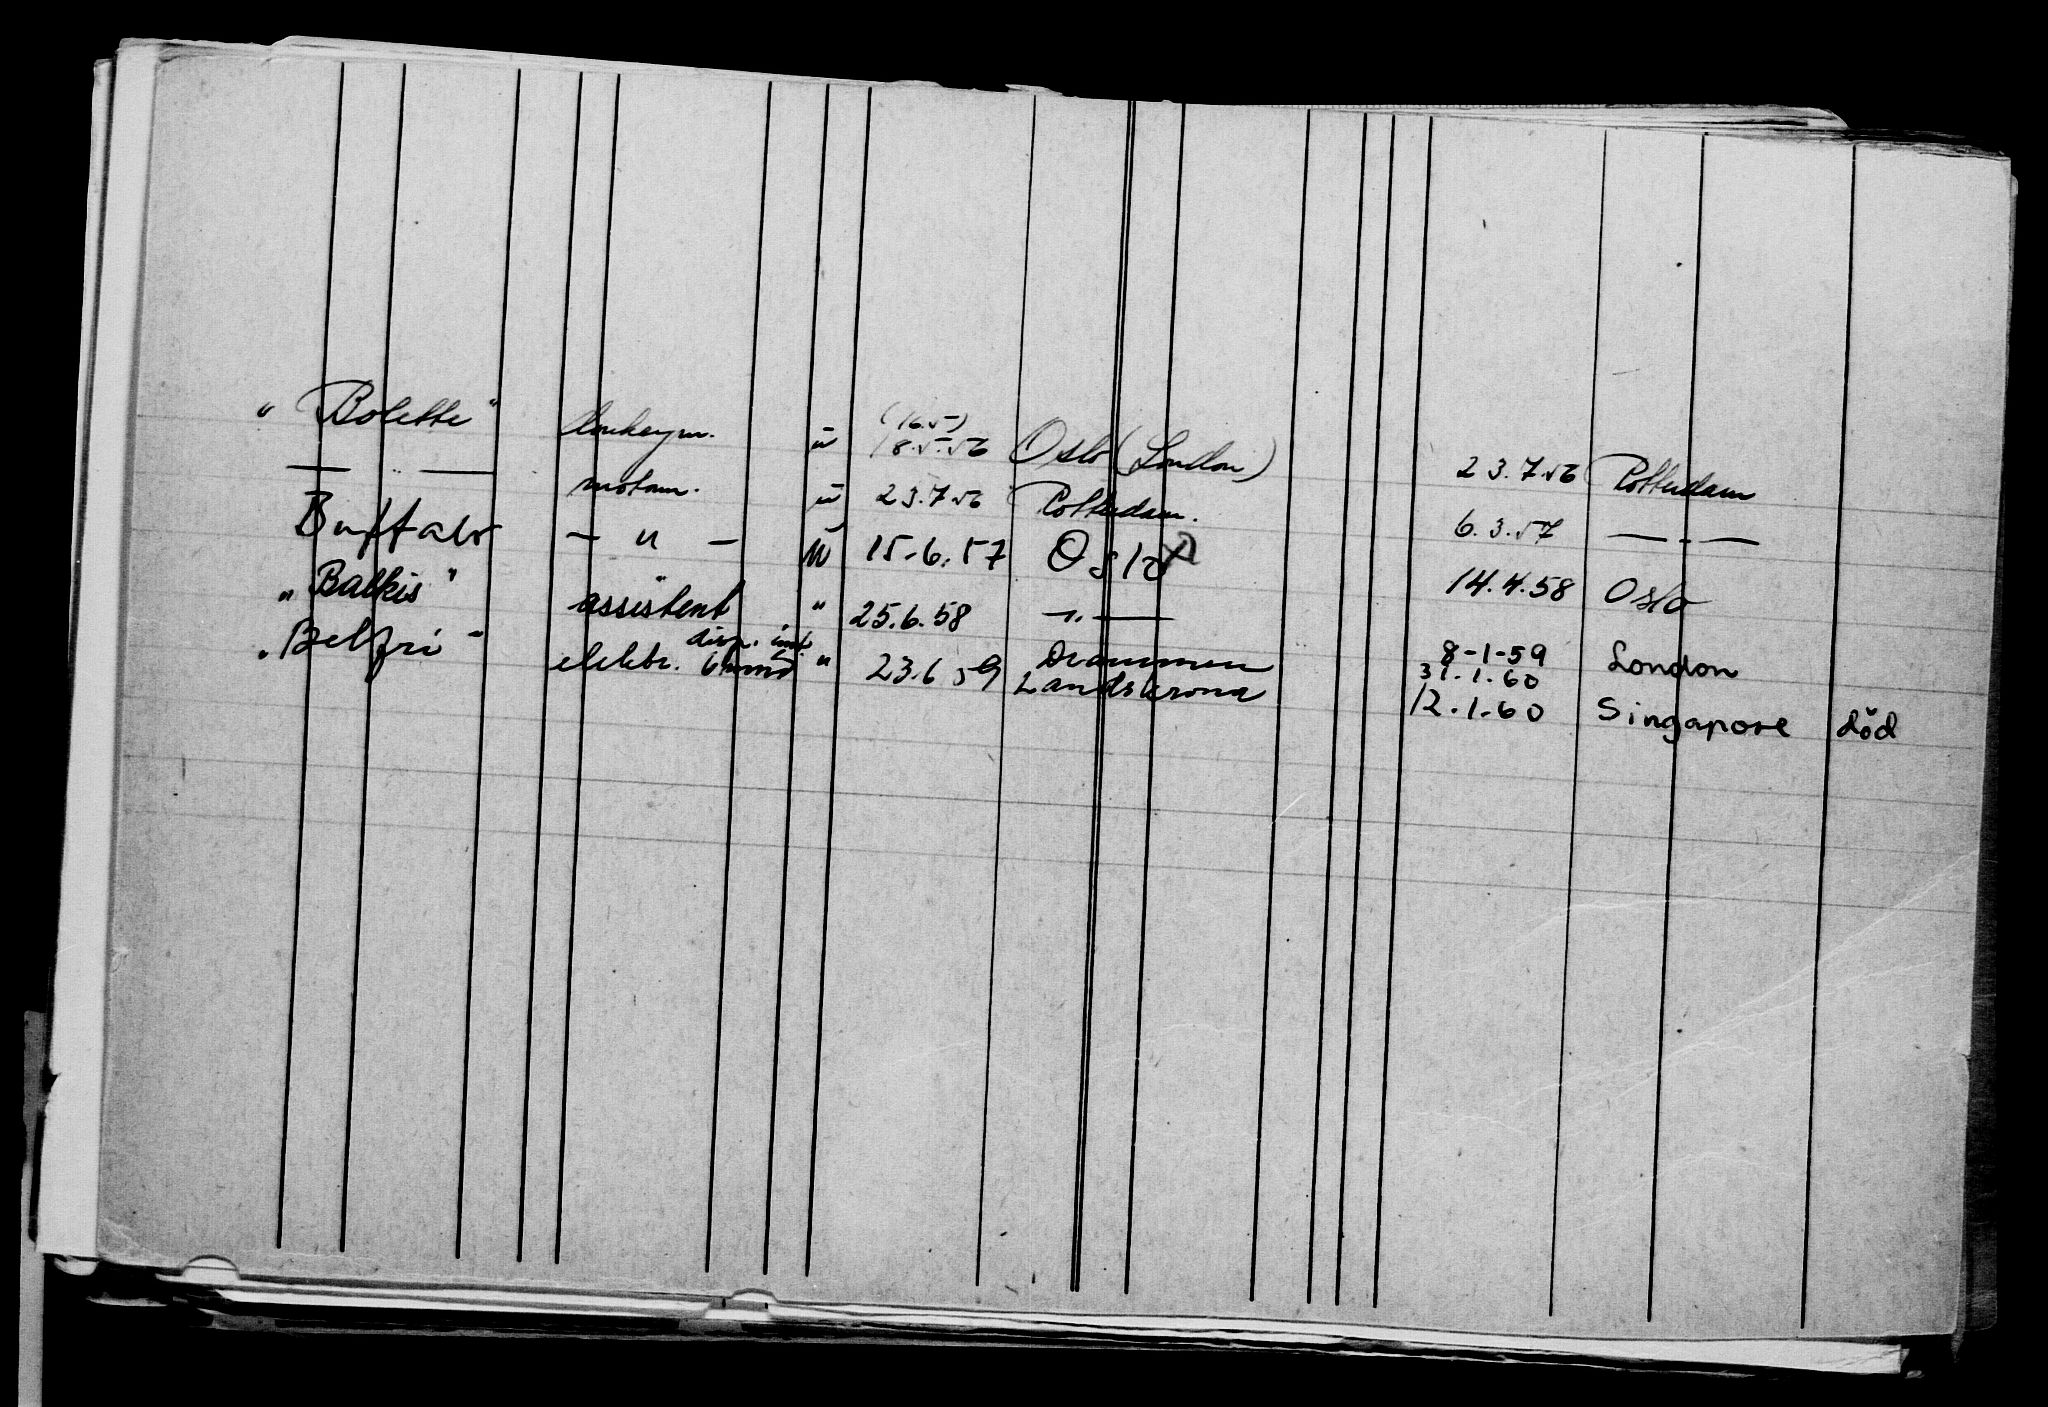 "Bolette" donkeym. u (16.5) 18.5.56 Oslo (London) 23.7.56 Rotterdam
— " — motorm. u 23.7.56 Rotterdam. 6.3.57 — " —
Buffalo — " — u 15.6.57 Oslo 14.4.58 Oslo
"Balkis" assistent " 25.6.58 — " — 8-1-59 London
"Belfri" elektr. disp. " 23.6 59 Drammen Landskrona 31.1.60 12.1.60 Singapore död